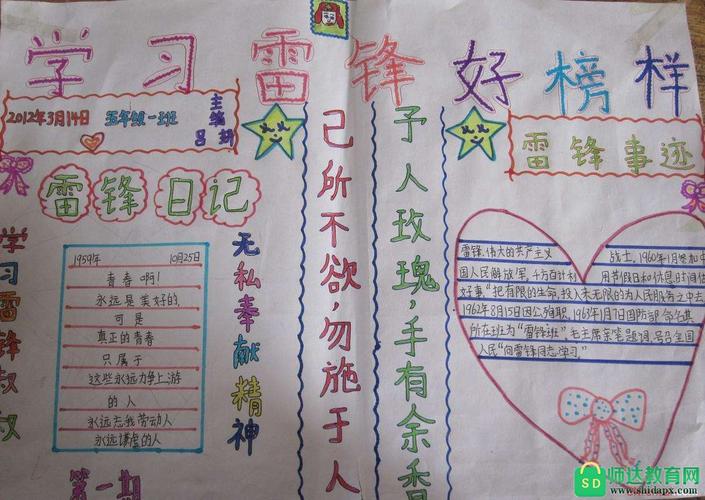 学习雷锋好榜样
2012年3月14日 五年级一班 主编 吕
雷锋日记
学习雷锋叔叔
1959年 10月25日
青春啊!
永远是美好的,
可是
真正的青春
只属于
这些永远力争上游
的人
永远忘我劳动人
永远谦虚的人
无私奉献精神
第一期
己所不欲,勿施于人
予人玫瑰,手有余香
雷锋事迹
雷锋,伟大的共产主义 战士,1960年1月参加中
国人民解放军,千方百计利 用节假日和休息时间
好事,"把有限的生命,投入未无限的为人民服务之中去
1962年8月15日因公殉职,1963年1月7日国防部命名其
所在班为"雷锋班",毛主席亲笔题词,号召全国
人民"向雷锋同志学习"
SD 师达教育网
www.shidapx.com